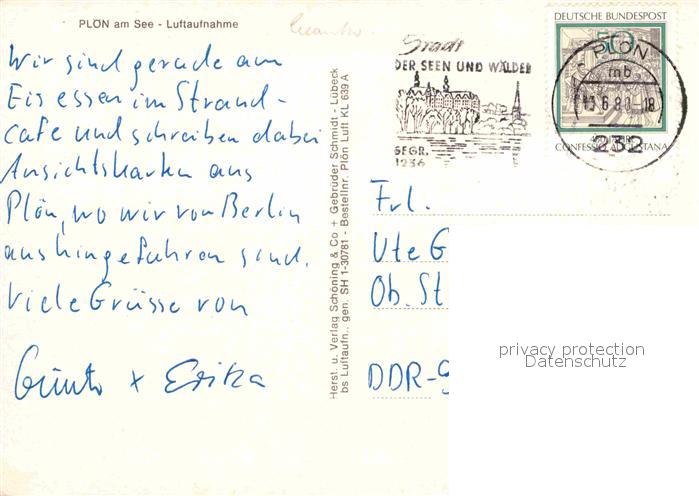 PLÖN am See - Luftaufnahme
Wir sind gerade am
Eis essen im Strand-
cafe und schreiben dabei
Ansichtskarten aus
Plön, wo wir von Berlin
aus hingefahren sind.
Viele Grüsse von
Günter + Erika
Herst. u. Verlag Schöning & Co + Gebrüder Schmidt - Lübeck
bs Luftaufn.. gen. SH 1-30781 - Bestellnr. Plön Luft KL 639 A
Stadt
DER SEEN UND WÄLDER
GEGR.
1236
DEUTSCHE BUNDESPOST
50
CONFESSIO AUGUSTANA
PLÖN
mb
6.80-18
232
Frl.
Ute G
Ob. St
DDR-9
privacy protection
Datenschutz